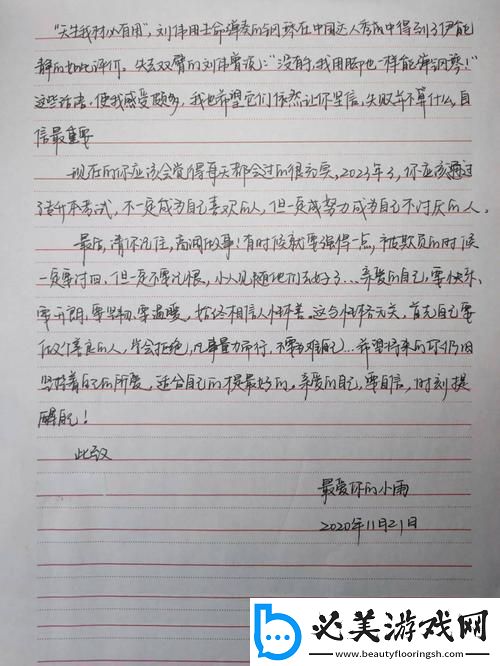 “天生我材必有用”，刘伟用生命弹奏的钢琴在中国达人秀成中得到了伊能
静的如此评价。失去双臂的刘伟曾说：“没有手，我用脚也一样能弹钢琴！”
这些话语，使我感受颇多，我也希望它们依然让你坚信，失败并不算什么，自
信最重要
现在的你应该会觉得每天都会过的很充实，2023年了，你应该通过
专升本考试，不一定成为自己喜欢的人，但一定成努力成为自己不讨厌的人。
最后，请你记住，高调做事！有时候就要强得一点，被欺负的时候
一定要讨回，但一定不要记恨，小人见随他们去好了…亲爱的自己，要快乐、
要开朗、要坚韧、要温暖，始终相信人性本善。这与性格无关，首先自己要
做个善良的人，学会拒绝，凡事量力而行，不要为难自己…希望将来的你仍旧
坚持着自己的所爱，适合自己的 才是最好的。亲爱的自己，要自信，时刻提
醒自己！
此致
最爱你的小雨
2020年11月21日
必美游戏网
www.beautyflooringsh.com